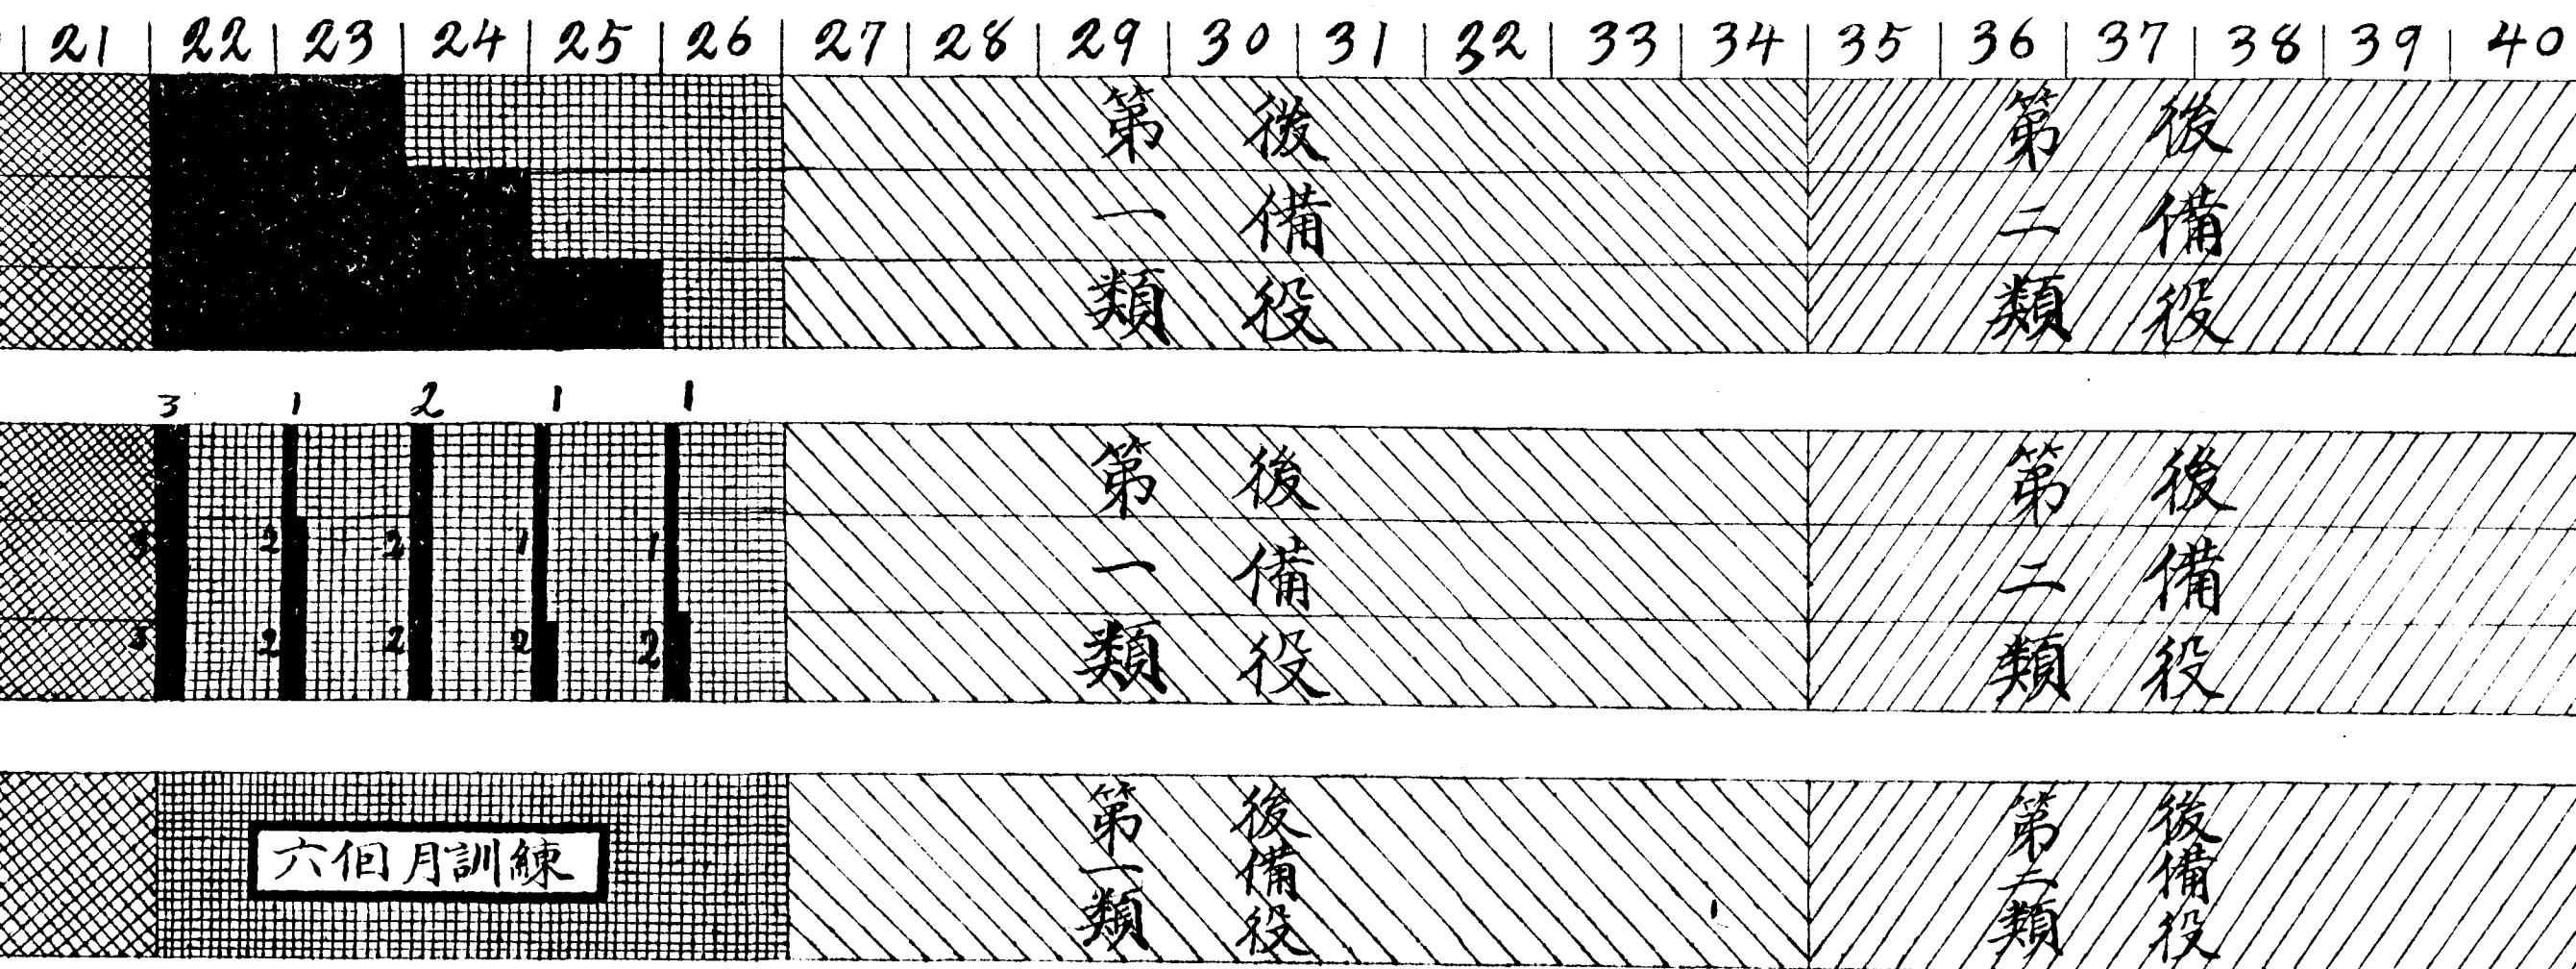 21 22 23 24 25 26 27 28 29 30 31 32 33 34 35 36 37 38 39 40
後備役
第一類
後備役
第二類
3 1 2 1 1
3 2 2 1 1
3 2 2 2 2
後備役
第一類
後備役
第二類
六個月訓練
後備役
第一類
後備役
第二類